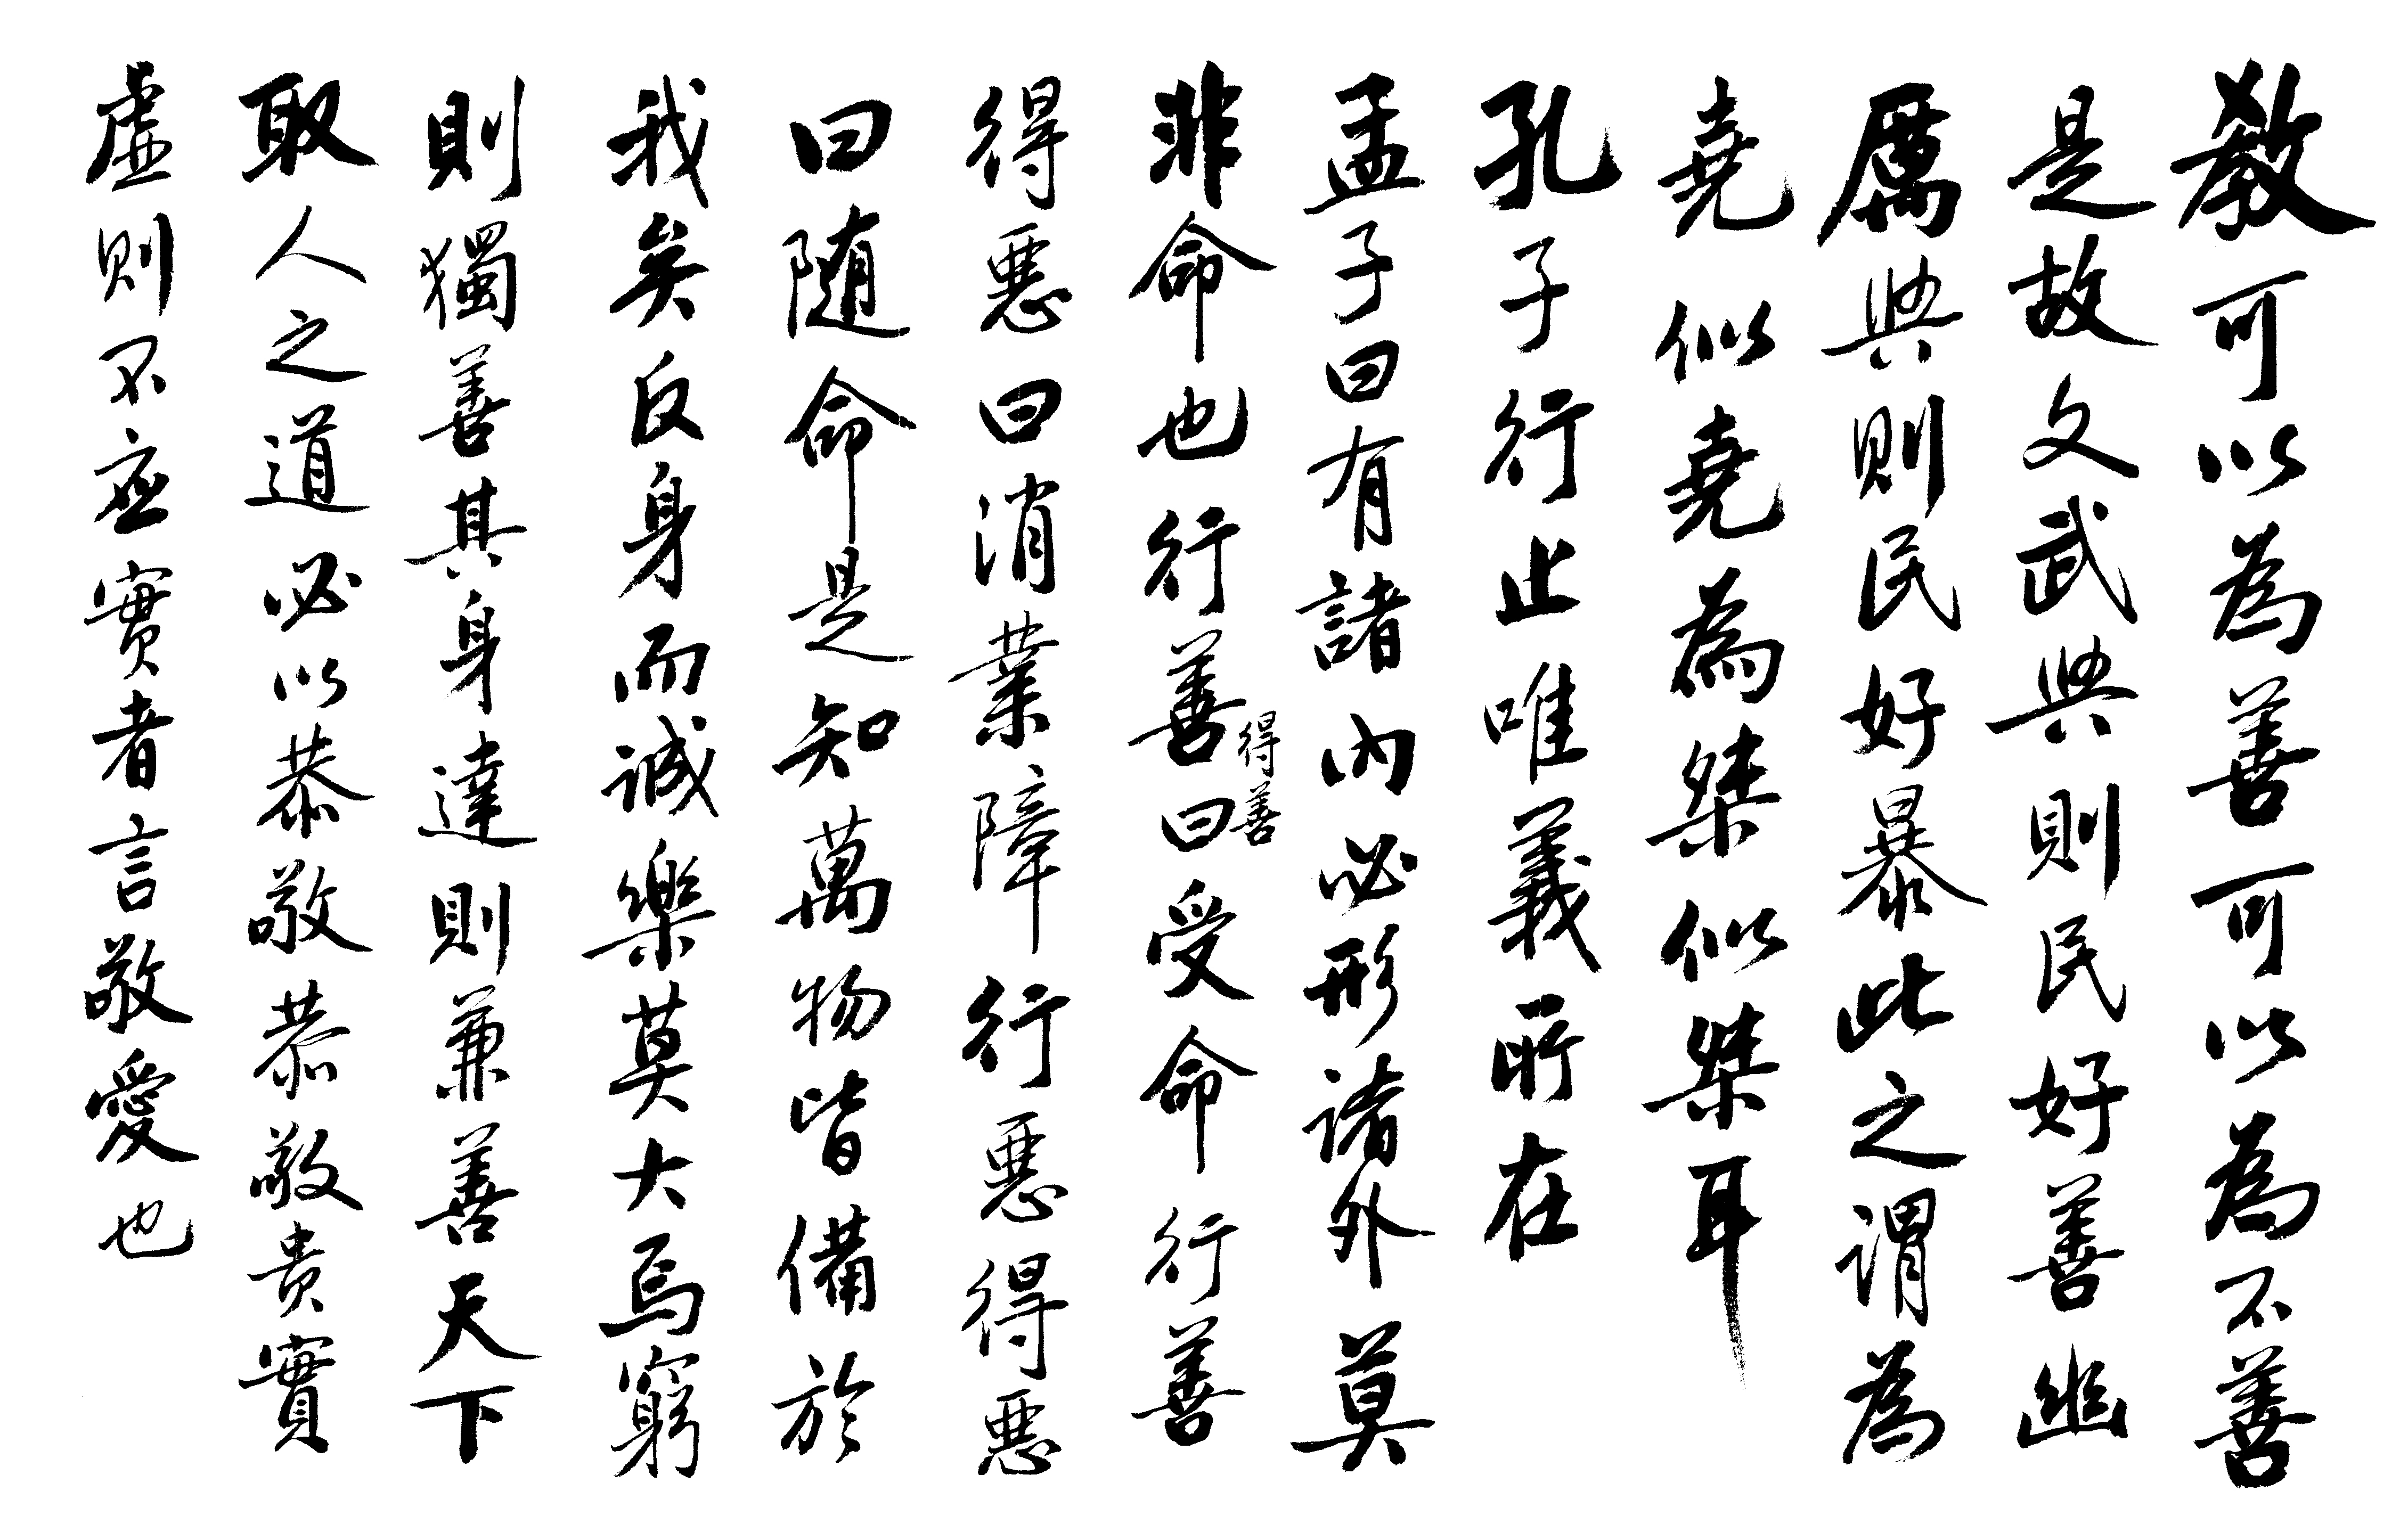 教可以為善可以為不善
是故文武興則民好善幽
厲興則民好暴此之謂為
堯似堯為桀似桀耳
孔子行止唯義所在
孟子曰有諸內必形諸外莫
非命也行善得善曰受命行善
得惡曰消業障行惡得惡
曰随命是知萬物皆備於
我矣反身而誠樂莫大焉窮
則獨善其身達則兼善天下
取人之道必以恭敬恭敬貴實
虛則不應實者言敬愛也